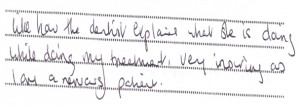 like how the dentist explains what she is doing
while doing my treatment. very                as
I am a nervous patient.